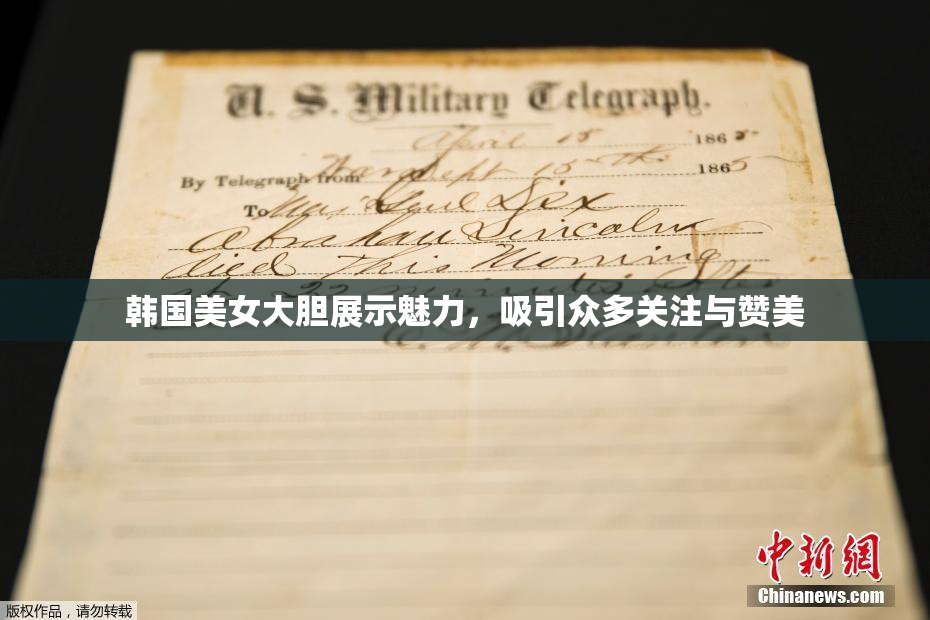 U. S. Military Telegraph.
April 15 1865
By Telegraph from War Dept 15th 1865
To Maj Genl Dix
Abraham Lincoln
died This Morning
at 22 minutes after
韩国美女大胆展示魅力，吸引众多关注与赞美
中新网
Chinanews.com
版权作品，请勿转载